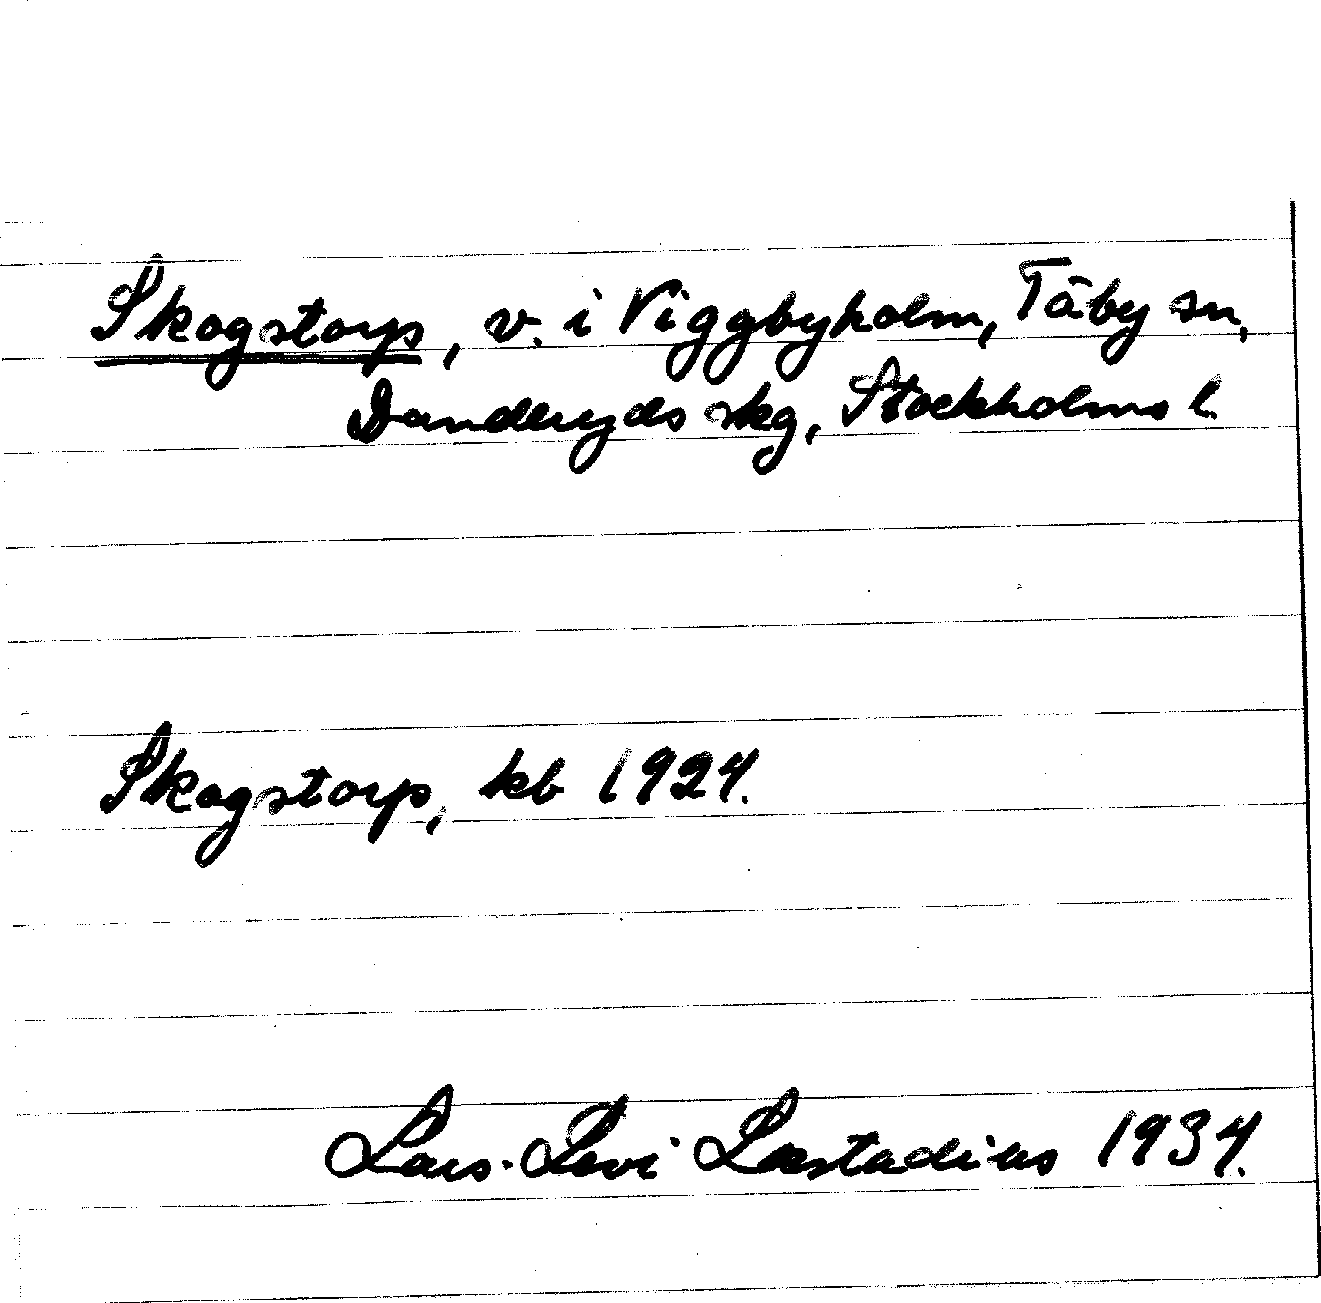 Skogstorp, v. i Viggbyholm, Täby sn,
Danderyds skg, Stockholms l.
Skogstorp, kb 1924.
Lars-Levi Læstadius 1934.